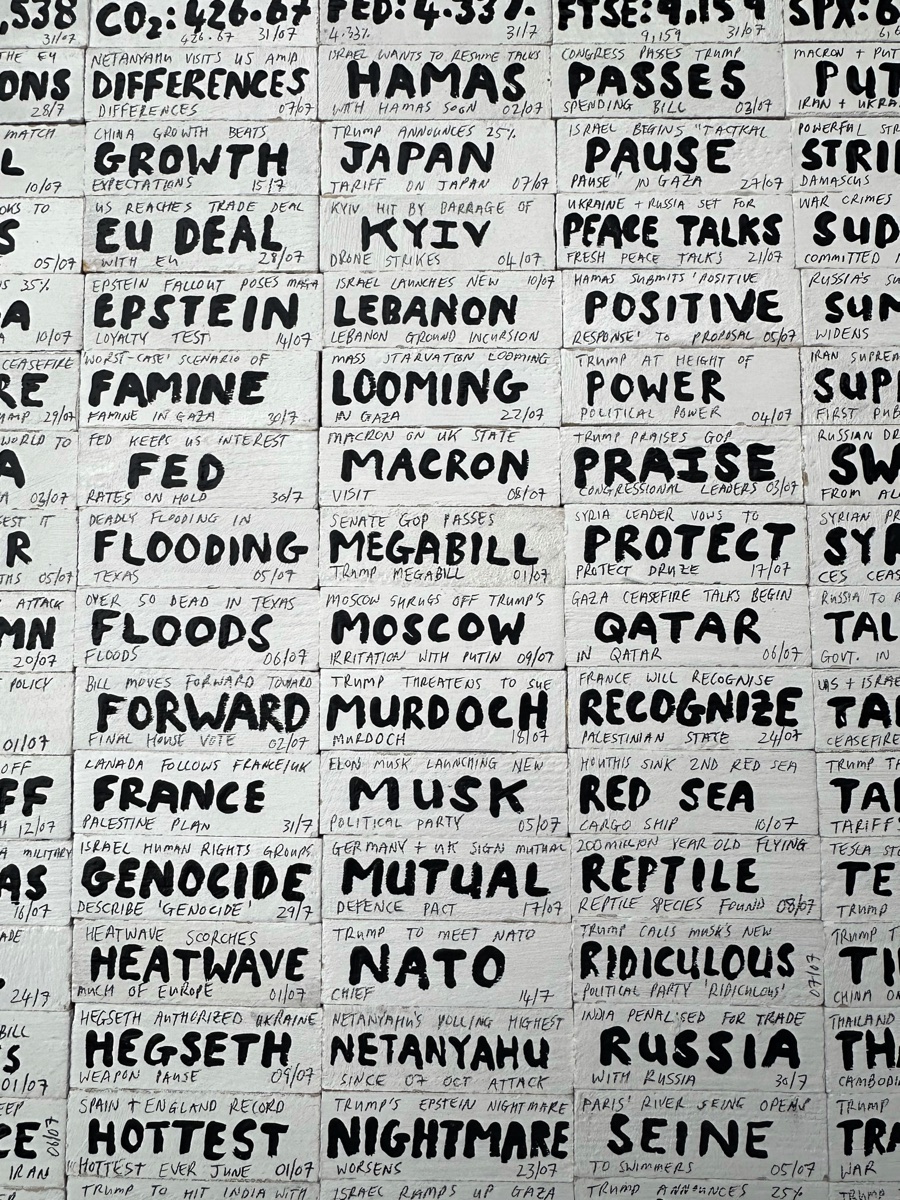 ,538
31/07
THE EU
ONS
28/7
MATCH
L
10/07
OKS TO
S
05/07
S 35%
A
10/07
CEASEFIRE
RE
AMP 29/07
WORLD TO
A
A 03/07
EST IT
R
THS 05/07
ATTACK
MN
20/07
POLICY
01/07
OFF
FF
H 12/07
A MILITARY
AS
16/07
ADE
24/7
BILL
S
01/07
EEP
CE
06/07
IRAN
CO2: 426.67
426.67 31/07
NETANYAHU VISITS US AMID
DIFFERENCES
DIFFERENCES 07/07
CHINA GROWTH BEATS
GROWTH
EXPECTATIONS 15/7
US REACHES TRADE DEAL
EU DEAL
WITH EU 28/07
EPSTEIN FALLOUT POSES MAGA
EPSTEIN
LOYALTY TEST 14/07
'WORST-CASE' SCENARIO OF
FAMINE
FAMINE IN GAZA 30/7
FED KEEPS US INTEREST
FED
RATES ON HOLD 30/7
DEADLY FLOODING IN
FLOODING
TEXAS 05/07
OVER 50 DEAD IN TEXAS
FLOODS
FLOODS 06/07
BILL MOVES FORWARD TOWARD
FORWARD
FINAL HOUSE VOTE 02/07
CANADA FOLLOWS FRANCE/UK
FRANCE
PALESTINE PLAN 31/7
ISRAEL HUMAN RIGHTS GROUPS
GENOCIDE
DESCRIBE 'GENOCIDE' 29/7
HEATWAVE SCORCHES
HEATWAVE
MUCH OF EUROPE 01/07
HEGSETH AUTHORIZED UKRAINE
HEGSETH
WEAPON PAUSE 09/07
SPAIN + ENGLAND RECORD
HOTTEST
HOTTEST EVER JUNE 01/07
TRUMP TO HIT INDIA WITH
FED: 4.33%
4.33% 31/7
ISRAEL WANTS TO RESUME TALKS
HAMAS
WITH HAMAS SOON 02/07
TRUMP ANNOUNCES 25%
JAPAN
TARIFF ON JAPAN 07/07
KYIV HIT BY BARRAGE OF
KYIV
DRONE STRIKES 04/07
ISRAEL LAUNCHES NEW 10/07
LEBANON
LEBANON GROUND INCURSION
MASS STARVATION LOOMING
LOOMING
IN GAZA 22/07
MACRON ON UK STATE
MACRON
VISIT 08/07
SENATE GOP PASSES
MEGABILL
TRUMP MEGABILL 01/07
MOSCOW SHRUGS OFF TRUMP'S
MOSCOW
IRRITATION WITH PUTIN 09/07
TRUMP THREATENS TO SUE
MURDOCH
MURDOCH 18/07
ELON MUSK LAUNCHING NEW
MUSK
POLITICAL PARTY 05/07
GERMANY + UK SIGN MUTUAL
MUTUAL
DEFENCE PACT 17/07
TRUMP TO MEET NATO
NATO
CHIEF 14/7
NETANYAHU'S POLLING HIGHEST
NETANYAHU
SINCE 07 OCT ATTACK
TRUMP'S EPSTEIN NIGHTMARE
NIGHTMARE
WORSENS 23/07
ISRAEL RAMPS UP GAZA
FTSE: 9,159
9,159 31/07
CONGRESS PASSES TRUMP
PASSES
SPENDING BILL 03/07
ISRAEL BEGINS "TACTICAL
PAUSE
PAUSE" IN GAZA 27/07
UKRAINE + RUSSIA SET FOR
PEACE TALKS
FRESH PEACE TALKS 21/07
HAMAS SUBMITS 'POSITIVE
POSITIVE
RESPONSE' TO PROPOSAL 05/07
TRUMP AT HEIGHT OF
POWER
POLITICAL POWER 04/07
TRUMP PRAISES GOP
PRAISE
CONGRESSIONAL LEADERS 03/07
SYRIA LEADER VOWS TO
PROTECT
PROTECT DRUZE 17/07
GAZA CEASEFIRE TALKS BEGIN
QATAR
IN QATAR 06/07
FRANCE WILL RECOGNISE
RECOGNIZE
PALESTINIAN STATE 24/07
HOUTHIS SINK 2ND RED SEA
RED SEA
CARGO SHIP 10/07
200 MILLION YEAR OLD FLYING
REPTILE
REPTILE SPECIES FOUND 08/07
TRUMP CALLS MUSK'S NEW
RIDICULOUS
POLITICAL PARTY 'RIDICULOUS'
07/07
INDIA PENALISED FOR TRADE
RUSSIA
WITH RUSSIA 30/7
PARIS' RIVER SEINE OPENS
SEINE
TO SWIMMERS 05/07
TRUMP ANNOUNCES 25%
SPX: 6
MACRON + PUT
PUT
IRAN + UKRA
POWERFUL STR
STRI
DAMASCUS
WAR CRIMES
SUD
COMMITTED I
RUSSIA'S SU
SUM
WIDENS
IRAN SUPREM
SUPR
FIRST PUB
RUSSIAN DR
SW
FROM AL
SYRIAN PR
SYR
CES CEAS
RUSSIA TO R
TAL
GOVT. IN
US + ISRAE
TA
CEASEFIRE
TRUMP TA
TA
TARIFF
TESLA STO
TE
TRUMP
TRUMP T
TI
CHINA ON
THAILAND
THA
CAMBODI
TRUMP
TRA
WAR
TRUMP